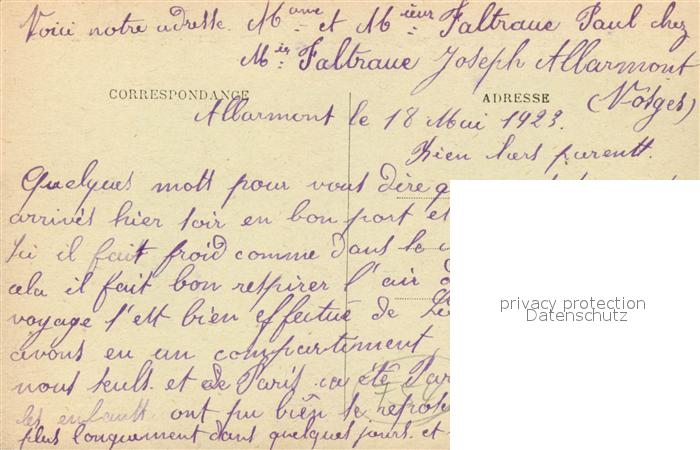 Voici notre adresse. Mame et Mieur Faltraue Paul chez
Mier Faltraue Joseph Allarmont
CORRESPONDANCE ADRESSE (Vosges)
Allarmont le 18 Mai 1923.
Bien chers parents.
Quelques mots pour vous dire q
arrivés hier soir en bon port et
Ici il fait froid comme dans le
cela il fait bon respirer l'air d
voyage s'est bien effectué de
avons eu un compartiment
nous seuls. et de Paris ca été Par
les enfants ont pu bien se repose
plus longuement dans quelques jours. et
privacy protection
Datenschutz